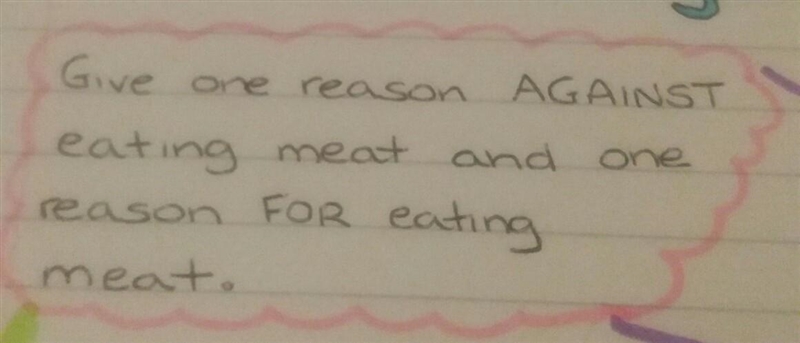 Give one reason AGAINST
eating meat and one
reason FOR eating
meat.